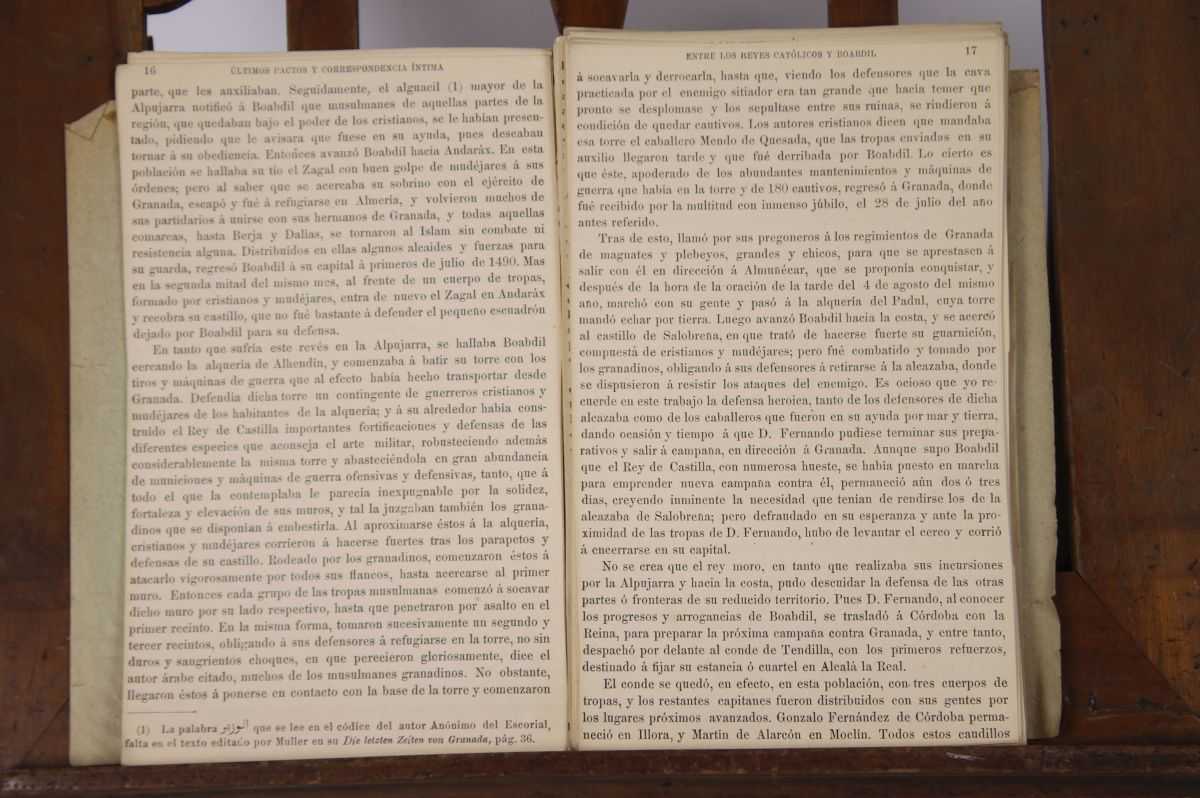 16
ÚLTIMOS PACTOS Y CORRESPONDENCIA ÍNTIMA
parte, que les auxiliaban. Seguidamente, el alguacil (1) mayor de la
Alpujarra notificó á Boabdil que musulmanes de aquellas partes de la
región, que quedaban bajo el poder de los cristianos, se le habían presen-
tado, pidiendo que le avisara que fuese en su ayuda, pues deseaban
tornar á su obediencia. Entonces avanzó Boabdil hacia Andaráx. En esta
población se hallaba su tío el Zagal con buen golpe de mudéjares á sus
órdenes; pero al saber que se acercaba su sobrino con el ejército de
Granada, escapó y fué á refugiarse en Almería, y volvieron muchos de
sus partidarios á unirse con sus hermanos de Granada, y todas aquellas
comarcas, hasta Berja y Dalias, se tornaron al Islam sin combate ni
resistencia alguna. Distribuidos en ellas algunos alcaides y fuerzas para
su guarda, regresó Boabdil á su capital á primeros de julio de 1490. Mas
en la segunda mitad del mismo mes, al frente de un cuerpo de tropas,
formado por cristianos y mudéjares, entra de nuevo el Zagal en Andaráx
y recobra su castillo, que no fué bastante á defender el pequeño escuadrón
dejado por Boabdil para su defensa.
En tanto que sufría este revés en la Alpujarra, se hallaba Boabdil
cercando la alquería de Alhendín, y comenzaba á batir su torre con los
tiros y máquinas de guerra que al efecto había hecho transportar desde
Granada. Defendía dicha torre un contingente de guerreros cristianos y
mudéjares de los habitantes de la alquería; y á su alrededor había cons-
truído el Rey de Castilla importantes fortificaciones y defensas de las
diferentes especies que aconseja el arte militar, robusteciendo además
considerablemente la misma torre y abasteciéndola en gran abundancia
de municiones y máquinas de guerra ofensivas y defensivas, tanto, que á
todo el que la contemplaba le parecía inexpugnable por la solidez,
fortaleza y elevación de sus muros, y tal la juzgaban también los grana-
dinos que se disponían á embestirla. Al aproximarse éstos á la alquería,
cristianos y mudéjares corrieron á hacerse fuertes tras los parapetos y
defensas de su castillo. Rodeado por los granadinos, comenzaron éstos á
atacarlo vigorosamente por todos sus flancos, hasta acercarse al primer
muro. Entonces cada grupo de las tropas musulmanas comenzó á socavar
dicho muro por su lado respectivo, hasta que penetraron por asalto en el
primer recinto. En la misma forma, tomaron sucesivamente un segundo y
tercer recintos, obligando á sus defensores á refugiarse en la torre, no sin
duros y sangrientos choques, en que perecieron gloriosamente, dice el
autor árabe citado, muchos de los musulmanes granadinos. No obstante,
llegaron éstos á ponerse en contacto con la base de la torre y comenzaron
(1) La palabra الوزير que se lee en el códice del autor Anónimo del Escorial,
falta en el texto editado por Muller en su Die letzten Zeiten von Granada, pág. 36.
ENTRE LOS REYES CATÓLICOS Y BOABDIL
17
á socavarla y derrocarla, hasta que, viendo los defensores que la cava
practicada por el enemigo sitiador era tan grande que hacía temer que
pronto se desplomase y los sepultase entre sus ruinas, se rindieron á
condición de quedar cautivos. Los autores cristianos dicen que mandaba
esa torre el caballero Mendo de Quesada, que las tropas enviadas en su
auxilio llegaron tarde y que fué derribada por Boabdil. Lo cierto es
que éste, apoderado de los abundantes mantenimientos y máquinas de
guerra que había en la torre y de 180 cautivos, regresó á Granada, donde
fué recibido por la multitud con inmenso júbilo, el 28 de julio del año
antes referido.
Tras de esto, llamó por sus pregoneros á los regimientos de Granada
de magnates y plebeyos, grandes y chicos, para que se aprestasen á
salir con él en dirección á Almuñécar, que se proponía conquistar, y
después de la hora de la oración de la tarde del 4 de agosto del mismo
año, marchó con su gente y pasó á la alquería del Padul, cuya torre
mandó echar por tierra. Luego avanzó Boabdil hacia la costa, y se acercó
al castillo de Salobreña, en que trató de hacerse fuerte su guarnición,
compuesta de cristianos y mudéjares; pero fué combatido y tomado por
los granadinos, obligando á sus defensores á retirarse á la alcazaba, donde
se dispusieron á resistir los ataques del enemigo. Es ocioso que yo re-
cuerde en este trabajo la defensa heroica, tanto de los defensores de dicha
alcazaba como de los caballeros que fueron en su ayuda por mar y tierra,
dando ocasión y tiempo á que D. Fernando pudiese terminar sus prepa-
rativos y salir á campaña, en dirección á Granada. Aunque supo Boabdil
que el Rey de Castilla, con numerosa hueste, se había puesto en marcha
para emprender nueva campaña contra él, permaneció aún dos ó tres
días, creyendo inminente la necesidad que tenían de rendirse los de la
alcazaba de Salobreña; pero defraudado en su esperanza y ante la pro-
ximidad de las tropas de D. Fernando, hubo de levantar el cerco y corrió
á encerrarse en su capital.
No se crea que el rey moro, en tanto que realizaba sus incursiones
por la Alpujarra y hacia la costa, pudo descuidar la defensa de las otras
partes ó fronteras de su reducido territorio. Pues D. Fernando, al conocer
los progresos y arrogancias de Boabdil, se trasladó á Córdoba con la
Reina, para preparar la próxima campaña contra Granada, y entre tanto,
despachó por delante al conde de Tendilla, con los primeros refuerzos,
destinado á fijar su estancia ó cuartel en Alcalá la Real.
El conde se quedó, en efecto, en esta población, con tres cuerpos de
tropas, y los restantes capitanes fueron distribuidos con sus gentes por
los lugares próximos avanzados. Gonzalo Fernández de Córdoba perma-
neció en Illora, y Martín de Alarcón en Moclín. Todos estos caudillos